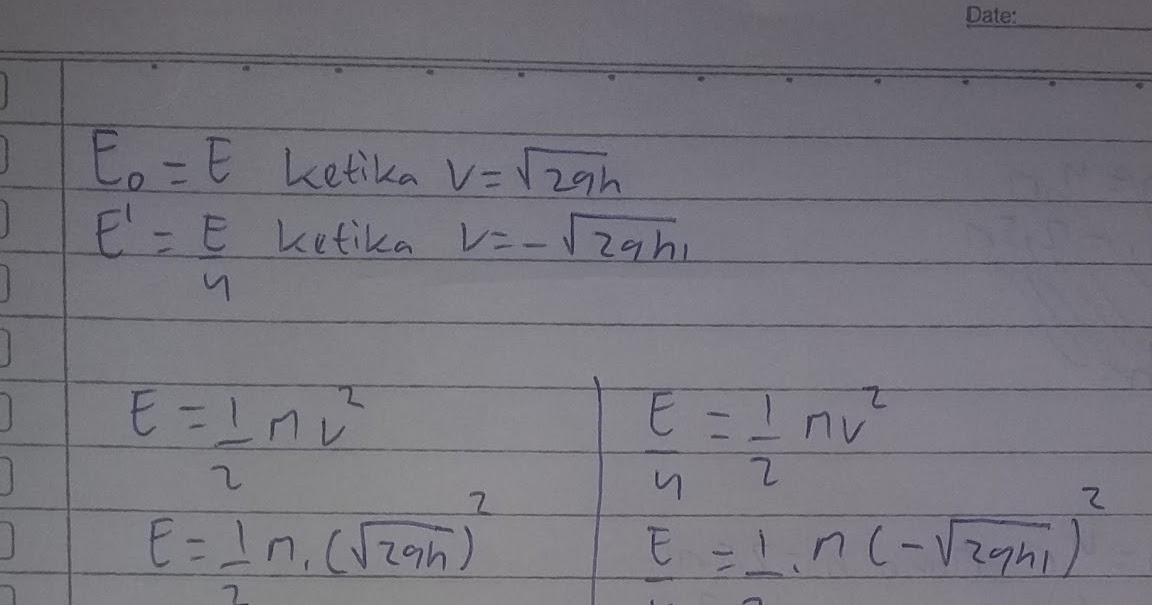 Date:
E₀ = E ketika v = √2gh
E' = E/4 ketika v = -√2gh₁
E = 1/2 m v²
E/4 = 1/2 m v²
E = 1/2 m . (√2gh)²
E/4 = 1/2 . m (-√2gh₁)²